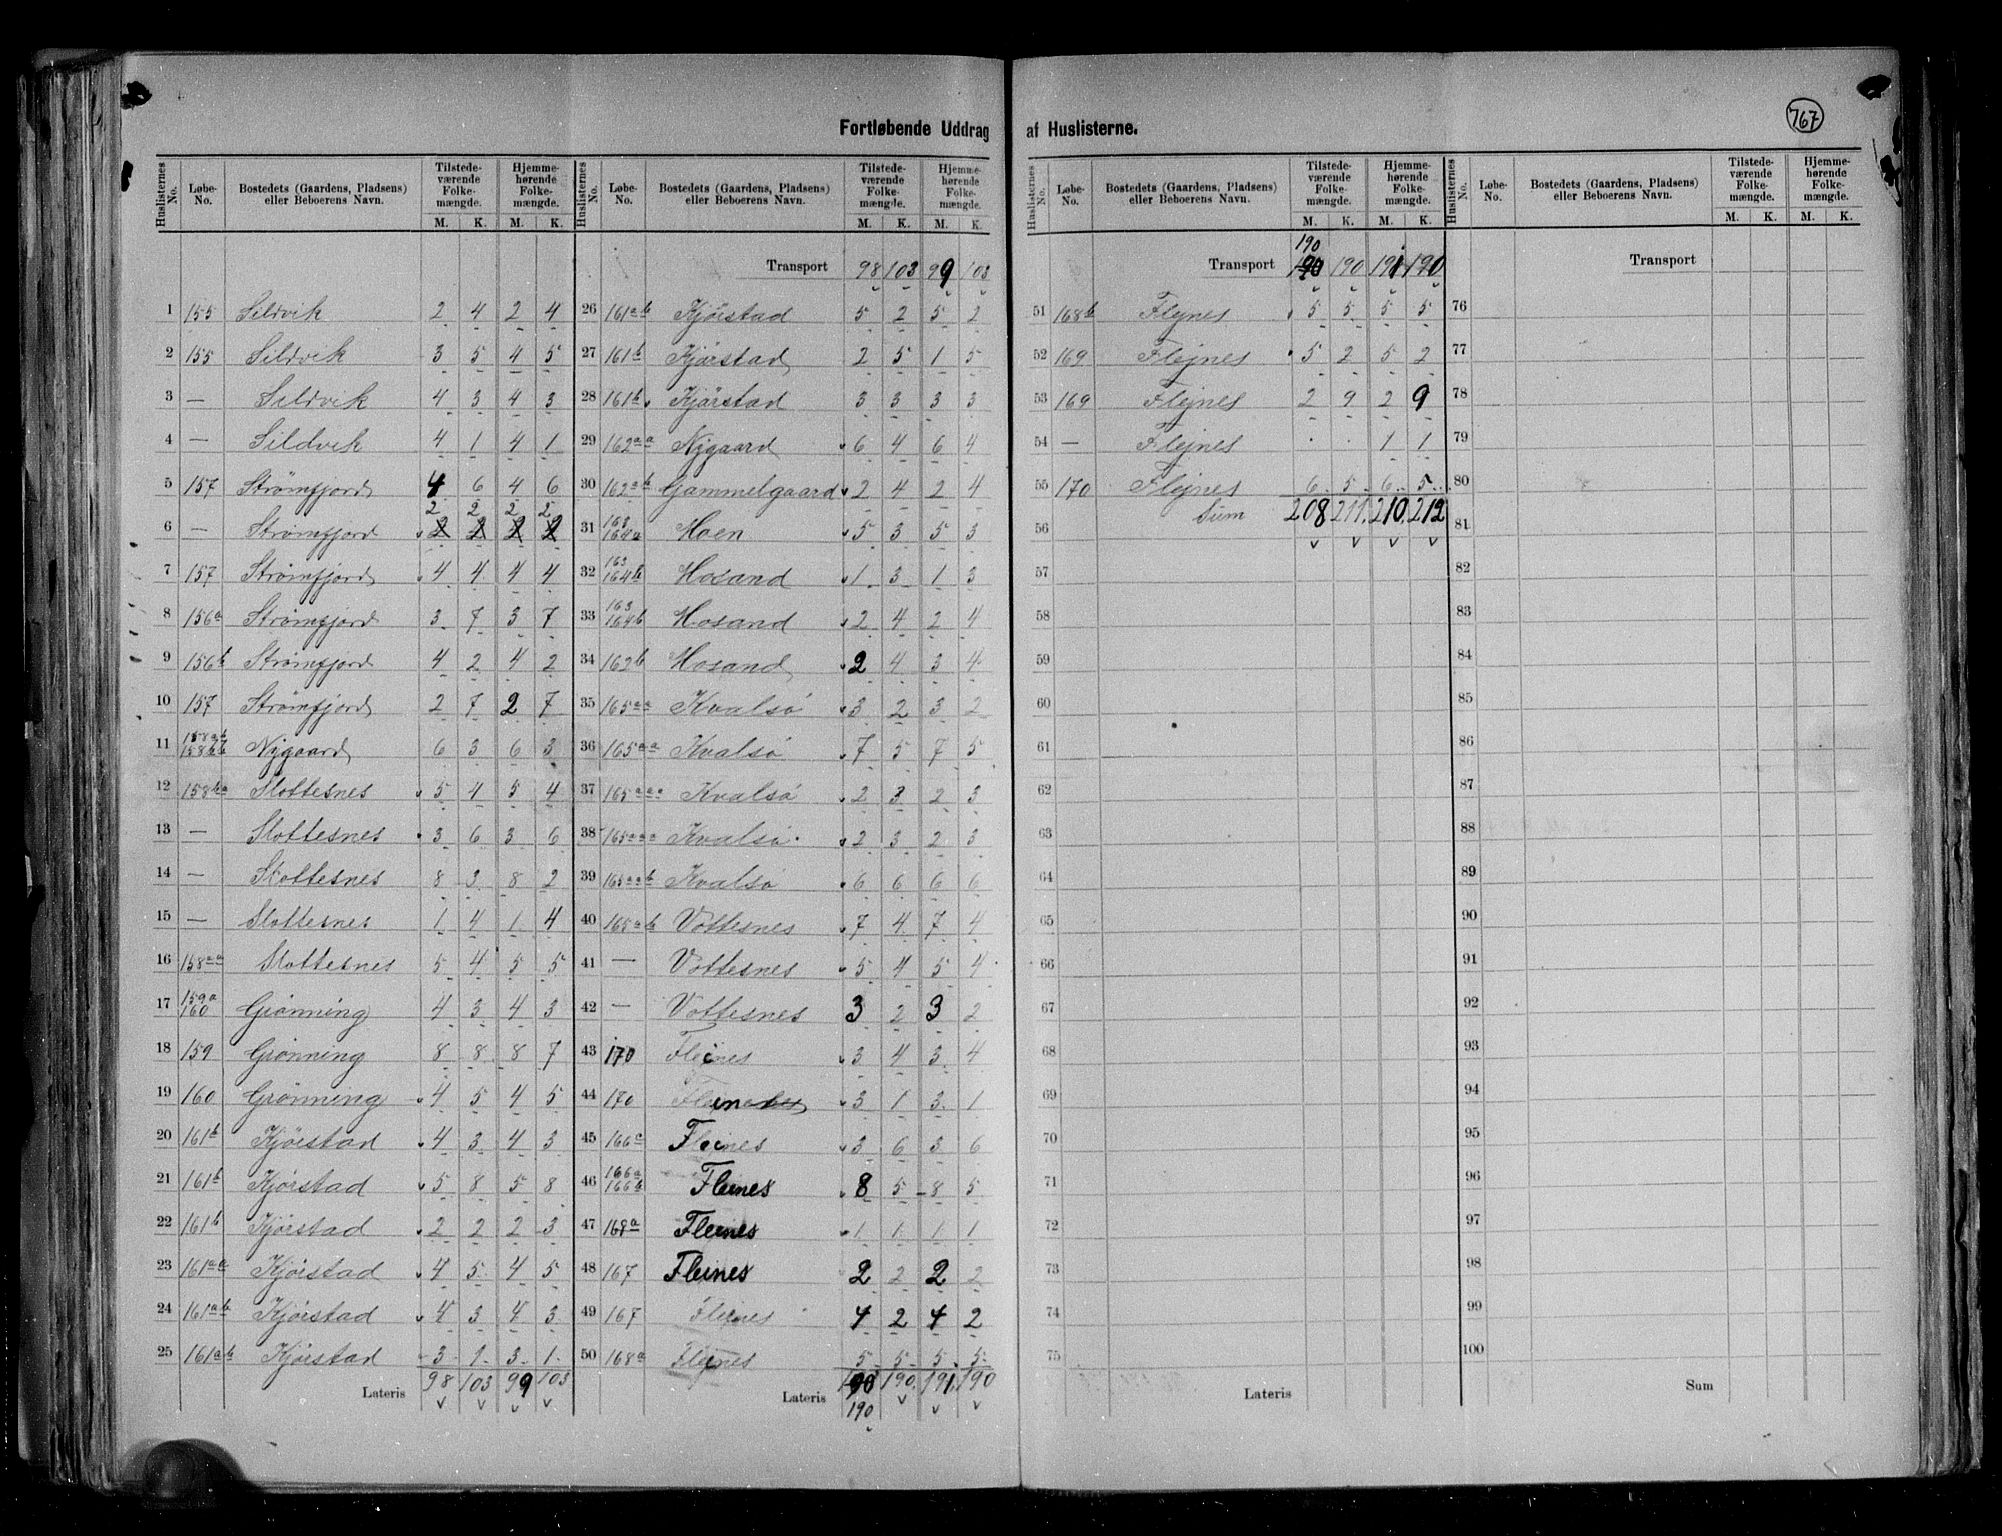 767
Fortløbende Uddrag af Huslisterne.
Huslisternes No. | Løbe-No. | Bostedets (Gaardens, Pladsens) eller Beboerens Navn. | Tilstedeværende Folkemængde. M. K. | Hjemmehørende Folkemængde. M. K.
1 155 Sildvik 2 4 2 4
2 155 Sildvik 3 5 4 5
3 — Sildvik 4 3 4 3
4 — Sildvik 4 1 4 1
5 157 Strømfjord 4 6 4 6
2 2 2 2
6 — Strømfjord 2 2 2 2
7 157 Strømfjord 4 4 4 4
8 156a Strømfjord 3 7 3 7
9 156b Strømfjord 4 2 4 2
10 157 Strømfjord 2 7 2 7
11 158ab 158bb Nygaard 6 3 6 3
12 158ba Slottesnes 5 4 5 4
13 — Slottesnes 3 6 3 6
14 — Slottesnes 8 3 8 2
15 — Slottesnes 1 4 1 4
16 158aa Slottesnes 5 4 5 5
17 159a 160 Grønning 4 3 4 3
18 159 Grønning 8 8 8 7
19 160 Grønning 4 5 4 5
20 161b Kjørstad 4 3 4 3
21 161b Kjørstad 5 8 5 8
22 161b Kjørstad 2 2 2 3
23 161aa Kjørstad 4 5 4 5
24 161ab Kjørstad 4 3 4 3
25 161ab Kjørstad 3 1 3 1
Lateris 98 103 99 103
Huslisternes No. | Løbe-No. | Bostedets (Gaardens, Pladsens) eller Beboerens Navn. | Tilstedeværende Folkemængde. M. K. | Hjemmehørende Folkemængde. M. K.
Transport 98 103 99 103
26 161ab Kjørstad 5 2 5 2
27 161b Kjørstad 2 5 1 5
28 161b Kjørstad 3 3 3 3
29 162aa Nygaard 6 4 6 4
30 162ab Gammelgaard 2 4 2 4
31 163 164a Moen 5 3 5 3
32 163 164b Mosand 1 3 1 3
33 163 164b Mosand 2 4 2 4
34 162b Mosand 2 4 3 4
35 165aa Kvalsø 3 2 3 2
36 165aa Kvalsø 7 5 7 5
37 165aaa Kvalsø 2 3 2 3
38 165aaa Kvalsø 2 3 2 3
39 165aab Kvalsø 6 6 6 6
40 165ab Vottesnes 7 4 7 4
41 — Vottesnes 5 4 5 4
42 — Vottesnes 3 2 3 2
43 170 Fleines 3 4 3 4
44 170 Fleines 3 1 3 1
45 166a Fleines 3 6 3 6
46 166a 166b Fleines 8 5 8 5
47 168a Fleines 1 1 1 1
48 167 Fleines 2 2 2 2
49 167 Fleines 4 2 4 2
50 168a Flejnes 5 5 5 5
Lateris 190 190 191 190
190
Huslisternes No. | Løbe-No. | Bostedets (Gaardens, Pladsens) eller Beboerens Navn. | Tilstedeværende Folkemængde. M. K. | Hjemmehørende Folkemængde. M. K.
190
Transport 190 190 191 190
51 168b Flejnes 5 5 5 5
52 169 Flejnes 5 2 5 2
53 169 Flejnes 2 9 2 9
54 — Flejnes · · 1 1
55 170 Flejnes 6 5 6 5
56 Sum 208 211 210 212
57
58
59
60
61
62
63
64
65
66
67
68
69
70
71
72
73
74
75
Lateris
Huslisternes No. | Løbe-No. | Bostedets (Gaardens, Pladsens) eller Beboerens Navn. | Tilstedeværende Folkemængde. M. K. | Hjemmehørende Folkemængde. M. K.
Transport
76
77
78
79
80
81
82
83
84
85
86
87
88
89
90
91
92
93
94
95
96
97
98
99
100
Sum